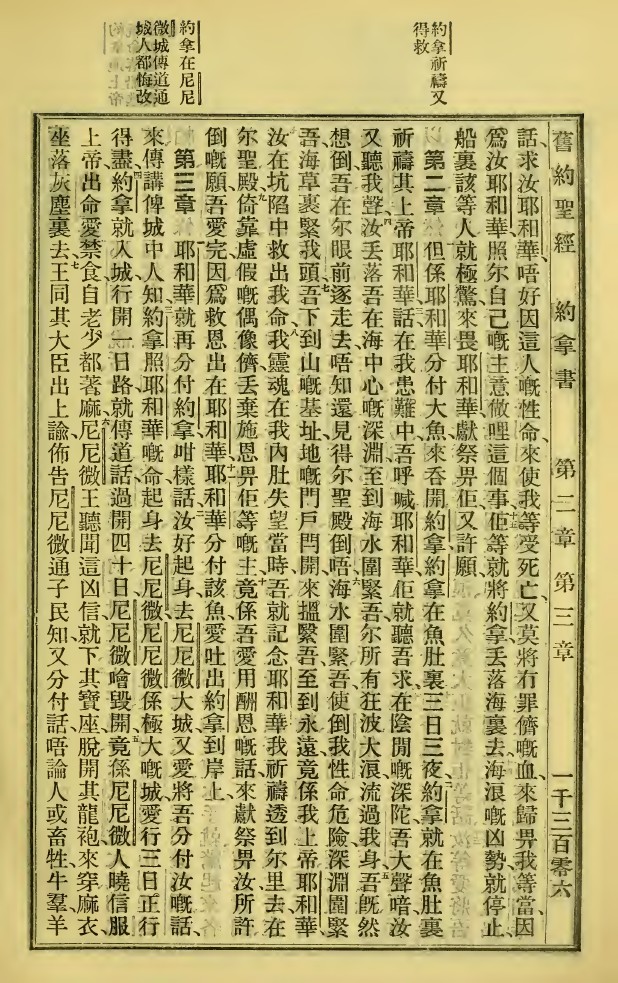 約拿祈禱又
得救
約拿在尼尼
微城傳道通
城人都悔改
舊約聖經 約拿書 第二章 第三章 一千三百零六
話、求汝耶和華、唔好因這人嘅性命、來使我等受死亡、又莫將冇罪儕嘅血、來歸畀我等、當因
爲汝耶和華照尔自己嘅主意做哩這個事、佢等就將約拿丟落海裏去、海浪嘅凶勢就停止、
船裏該等人就極驚來畏耶和華、獻祭畀佢、又許願、
第二章 但係耶和華分付大魚來吞開約拿、約拿在魚肚裏三日三夜、約拿就在魚肚裏
祈禱其上帝耶和華、話、在我患難中、吾呼喊耶和華、佢就聽吾求、在陰間嘅深陀、吾大聲喑、汝
又聽我聲、汝丟落吾在海中心嘅深淵、至到海水圍緊吾、尔所有狂波大浪、流過我身、吾旣然
想倒吾在尔眼前逐走去、唔知還見得尔聖殿倒唔、海水圍緊吾、使倒我性命危險、深淵圍緊
吾、海草裹緊我頭、吾下到山嘅基址、地嘅門戶閂開來搵緊吾、至到永遠、竟係我上帝耶和華、
汝在坑陷中救出我命、我靈魂在我內肚失望當時、吾就記念耶和華、我祈禱透到尔里去、在
尔聖殿、倚靠虛假嘅偶像儕、丟棄施恩畀佢等嘅主、竟係吾愛用酬恩嘅話、來獻祭畀汝、所許
倒嘅願、吾愛完、因爲救恩出在耶和華、耶和華分付該魚愛吐出約拿到岸上、
第三章 耶和華就再分付約拿、咁樣話、汝好起身、去尼尼微大城、又愛將吾分付汝嘅話、
來傳講俾城中人知、約拿照耶和華嘅命、起身去尼尼微、尼尼微係極大嘅城、愛行三日正行
得盡、約拿就入城、行開一日路、就傳道、話、過開四十日、尼尼微噲毀開、竟係尼尼微人曉信服
上帝、出命愛禁食、自老少都著麻、尼尼微王聽聞這凶信、就下其寶座、脫開其龍袍、來穿麻衣、
坐落灰塵裏去、王同其大臣出上諭、佈告尼尼微通子民知、又分付話、唔論人或畜牲牛羣羊